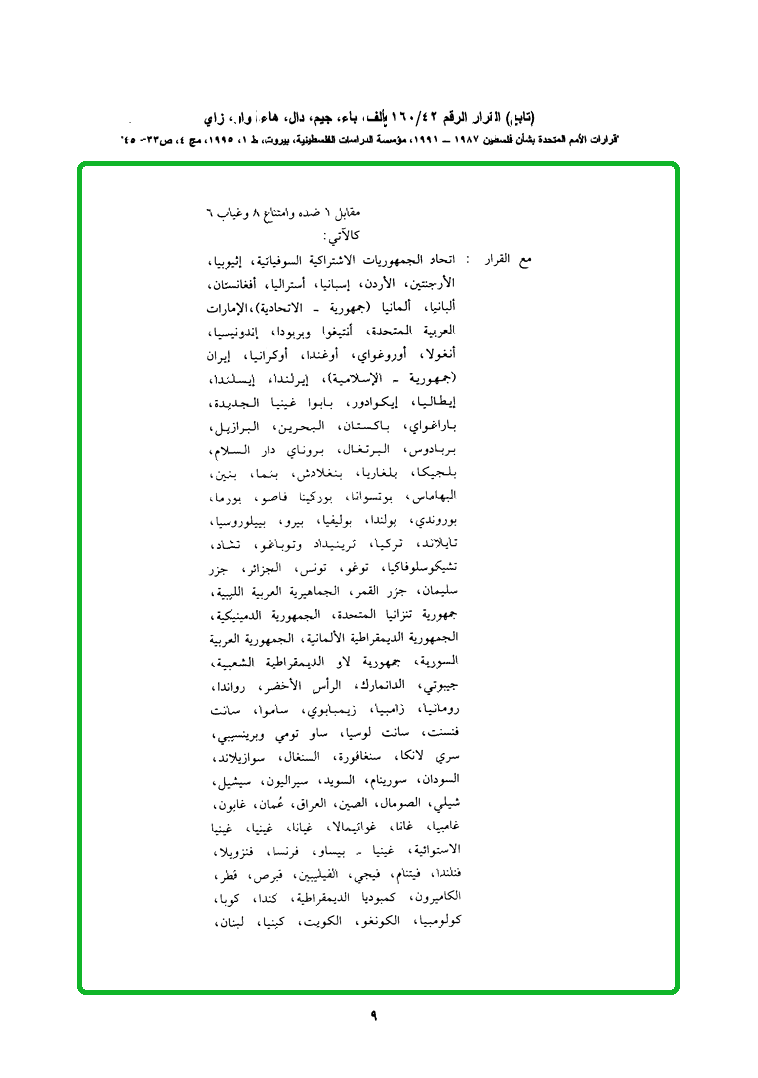 (تابع) القرار الرقم ١٦٠/٤٢ بألف، باء، جيم، دال، هاء، واو، زاي
"قرارات الأمم المتحدة بشأن فلسطين ١٩٨٧ – ١٩٩١، مؤسسة الدراسات الفلسطينية، بيروت، ط ١، ١٩٩٥، مج ٤، ص٣٣- ٤٥"
مقابل ١ ضده وامتناع ٨ وغياب ٦
كالآتي:
مع القرار : اتحاد الجمهوريات الاشتراكية السوفياتية، إثيوبيا،
الأرجنتين، الأردن، إسبانيا، أستراليا، أفغانستان،
ألبانيا، ألمانيا (جمهورية ـ الاتحادية)،الإمارات
العربية المتحدة، أنتيغوا وبربودا، إندونيسيا،
أنغولا، أوروغواي، أوغندا، أوكرانيا، إيران
(جمهورية ـ الإسلامية)، إيرلندا، إيسلندا،
إيطاليا، إيكوادور، بابوا غينيا الجديدة،
باراغواي، باكستان، البحرين، البرازيل،
بربادوس، البرتغال، بروناي دار السلام،
بلجيكا، بلغاريا، بنغلادش، بنما، بنين،
البهاماس، بوتسوانا، بوركينا فاصو، بورما،
بوروندي، بولندا، بوليفيا، بيرو، بييلوروسيا،
تايلاند، تركيا، ترينيداد وتوباغو، تشاد،
تشيكوسلوفاكيا، توغو، تونس، الجزائر، جزر
سليمان، جزر القمر، الجماهيرية العربية الليبية،
جمهورية تنزانيا المتحدة، الجمهورية الدمينيكية،
الجمهورية الديمقراطية الألمانية، الجمهورية العربية
السورية، جمهورية لاو الديمقراطية الشعبية،
جيبوتي، الدانمارك، الرأس الأخضر، رواندا،
رومانيا، زامبيا، زيمبابوي، ساموا، سانت
فنسنت، سانت لوسيا، ساو تومي وبرينسيبي،
سري لانكا، سنغافورة، السنغال، سوازيلاند،
السودان، سورينام، السويد، سيراليون، سيشيل،
شيلي، الصومال، الصين، العراق، عُمان، غابون،
غامبيا، غانا، غواتيمالا، غيانا، غينيا، غينيا
الاستوائية، غينيا ـ بيساو، فرنسا، فنزويلا،
فنلندا، فيتنام، فيجي، الفيليبين، قبرص، قطر،
الكاميرون، كمبوديا الديمقراطية، كندا، كوبا،
كولومبيا، الكونغو، الكويت، كينيا، لبنان،
٩